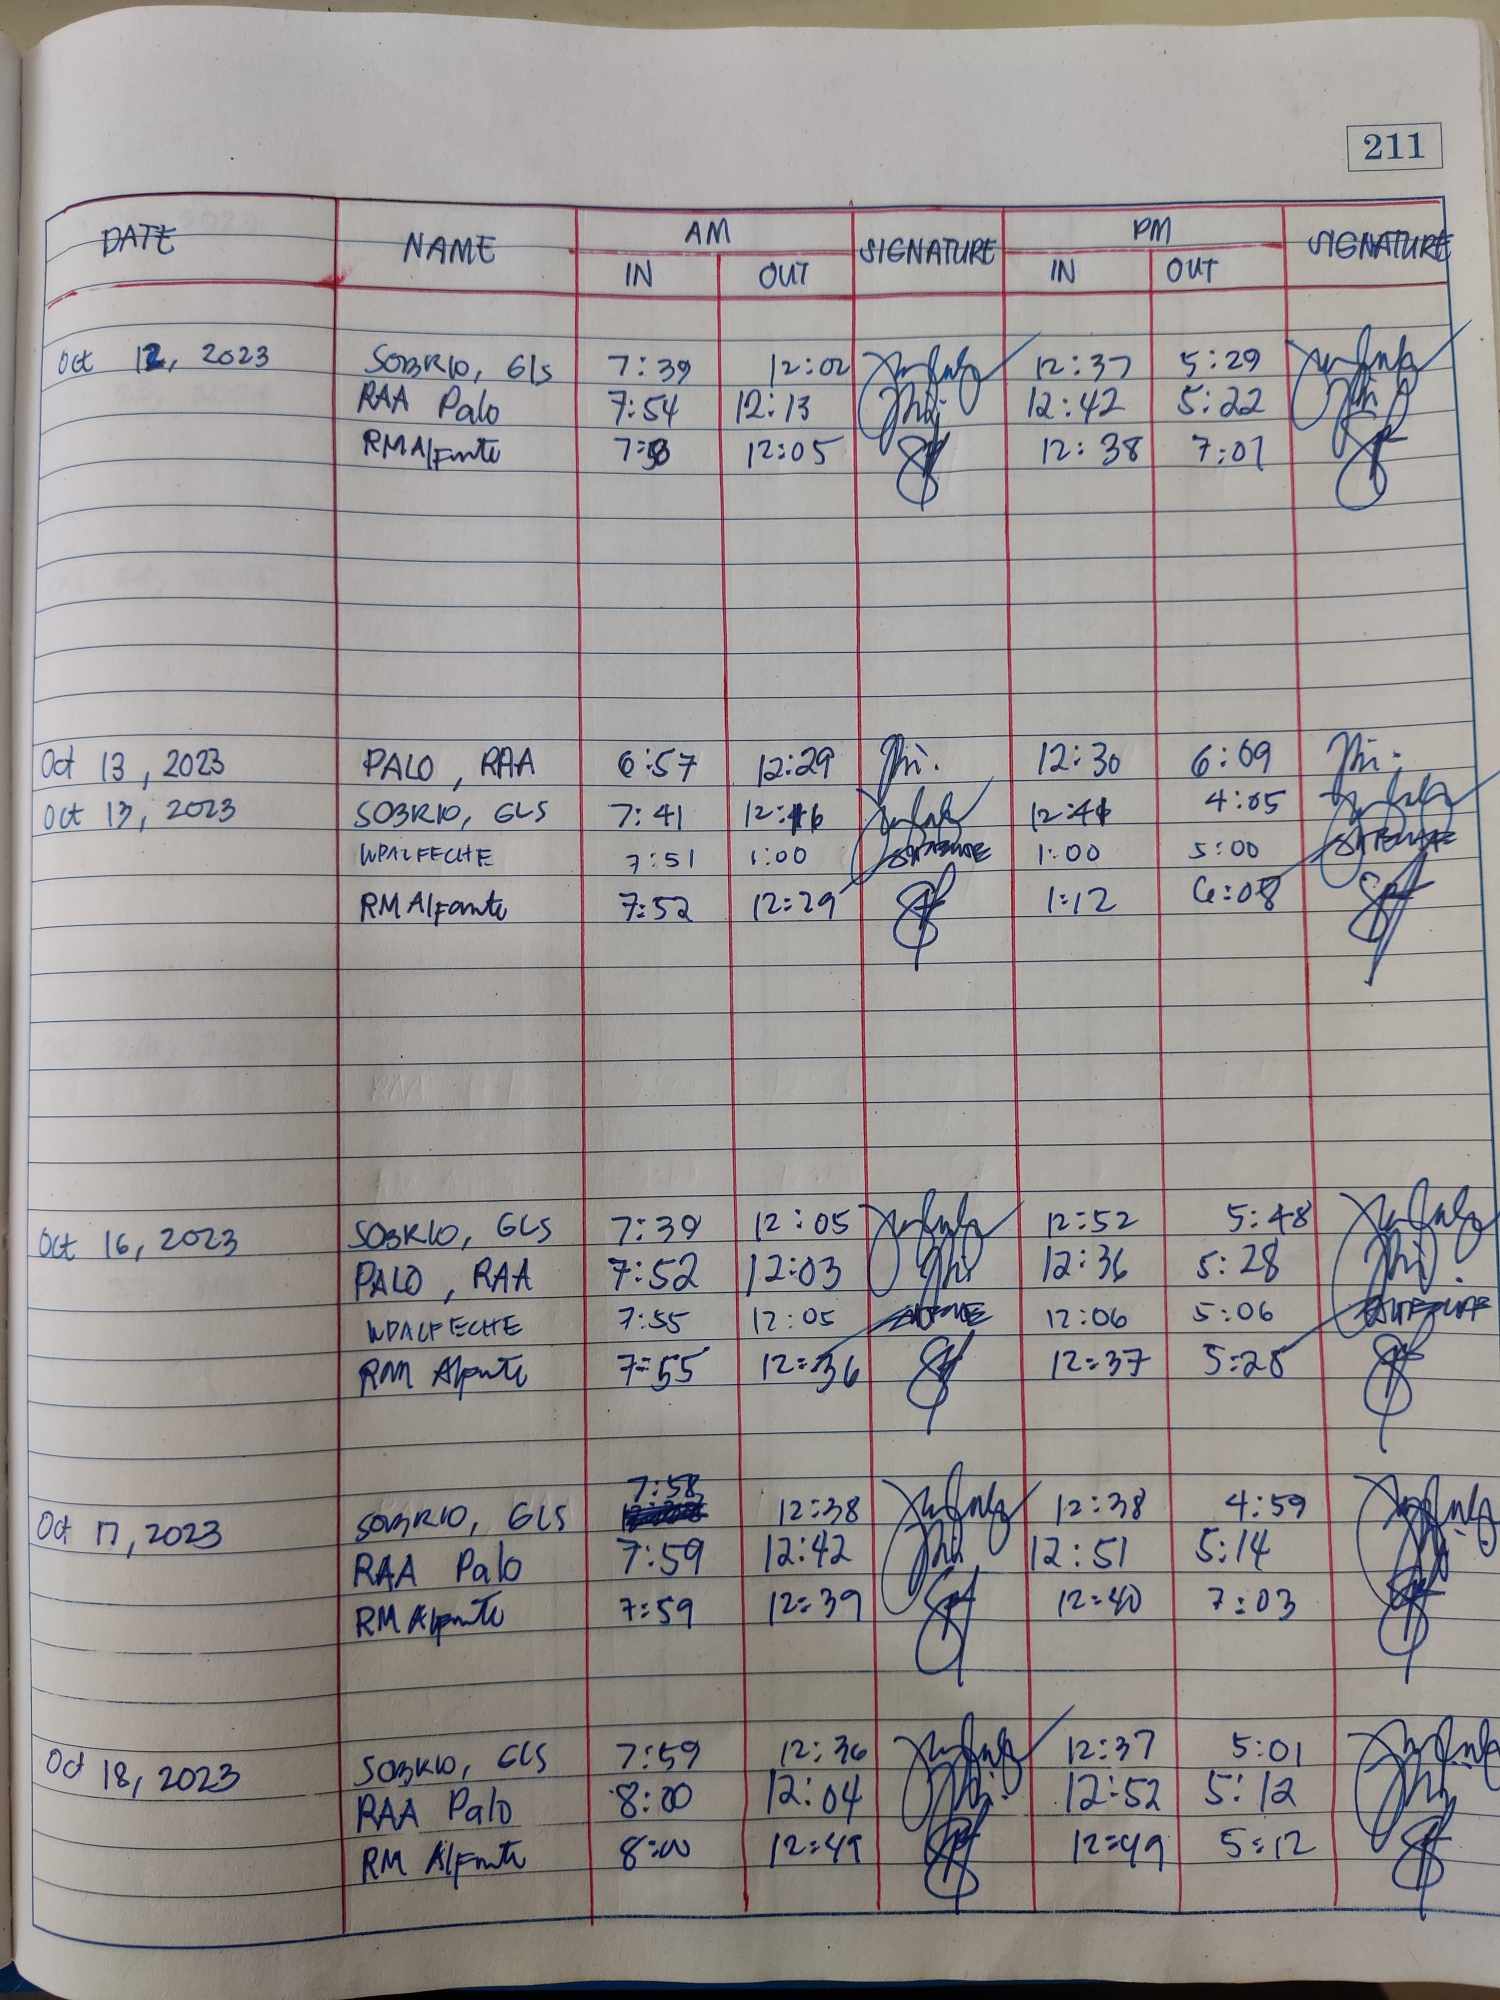 211
DATE NAME AM SIGNATURE PM SIGNATURE
IN OUT IN OUT
Oct 12, 2023 SOBRIO, GLS 7:39 12:02 12:37 5:29
RAA Palo 7:54 12:13 12:42 5:22
RM Alfante 12:05 12:38 7:01
Oct 13, 2023 PALO, RAA 6:57 12:29 12:30 6:09
Oct 13, 2023 SOBRIO, GLS 7:41 4:05
WPALFECHE 7:51 1:00 1:00 5:00
RM Alfante 7:52 12:29 1:12 6:08
Oct 16, 2023 SOBRIO, GLS 7:39 12:05 12:52 5:48
PALO, RAA 7:52 12:03 12:36 5:28
WPALFECHE 7:55 12:05 12:06 5:06
RM Alfante 7:55 12:36 12:37 5:28
7:58
Oct 17, 2023 SOBRIO, GLS 12:38 12:38 4:59
RAA Palo 7:59 12:42 12:51 5:14
RM Alfante 7:59 12:39 12:40 7:03
Oct 18, 2023 SOBRIO, GLS 7:59 12:36 12:37 5:01
RAA Palo 8:00 12:04 12:52 5:12
RM Alfante 8:00 12:49 12:49 5:12